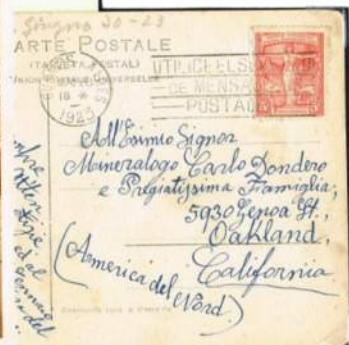 Giugno 30-23
ARTE POSTALE
(TARJETA POSTAL)
UNION POSTALE UNIVERSELLE
18
1923
UTILICE EL
DE MENSA
POSTALE
5
All'Esimio Signor
Mineralogo Carlo Dondero
e Pregiatissima Famiglia,
5930 Genoa St.,
Oakland,
California
(America del Nord.)
ed al